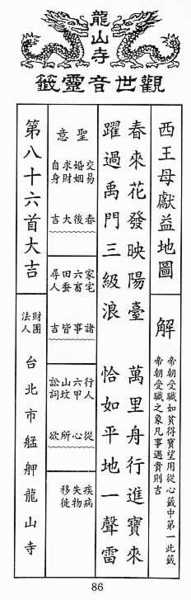 龍山寺
觀世音靈籤
西王母獻益地圖
解
帝朝受職如貧得寶望用從心籤中第一此籤
帝朝受職之象凡事遇貴則吉
春來花發映陽臺 萬里舟行進寶來
躍過禹門三級浪 恰如平地一聲雷
聖意
交易 婚姻 求財 自身
春後大吉
家宅 六畜 田蚕 尋人
諸事皆吉
行人 六甲 山坟 訟詞
從心所欲
疾病 失物 移徙
第八十六首大吉
財團法人 台北市艋舺龍山寺
86